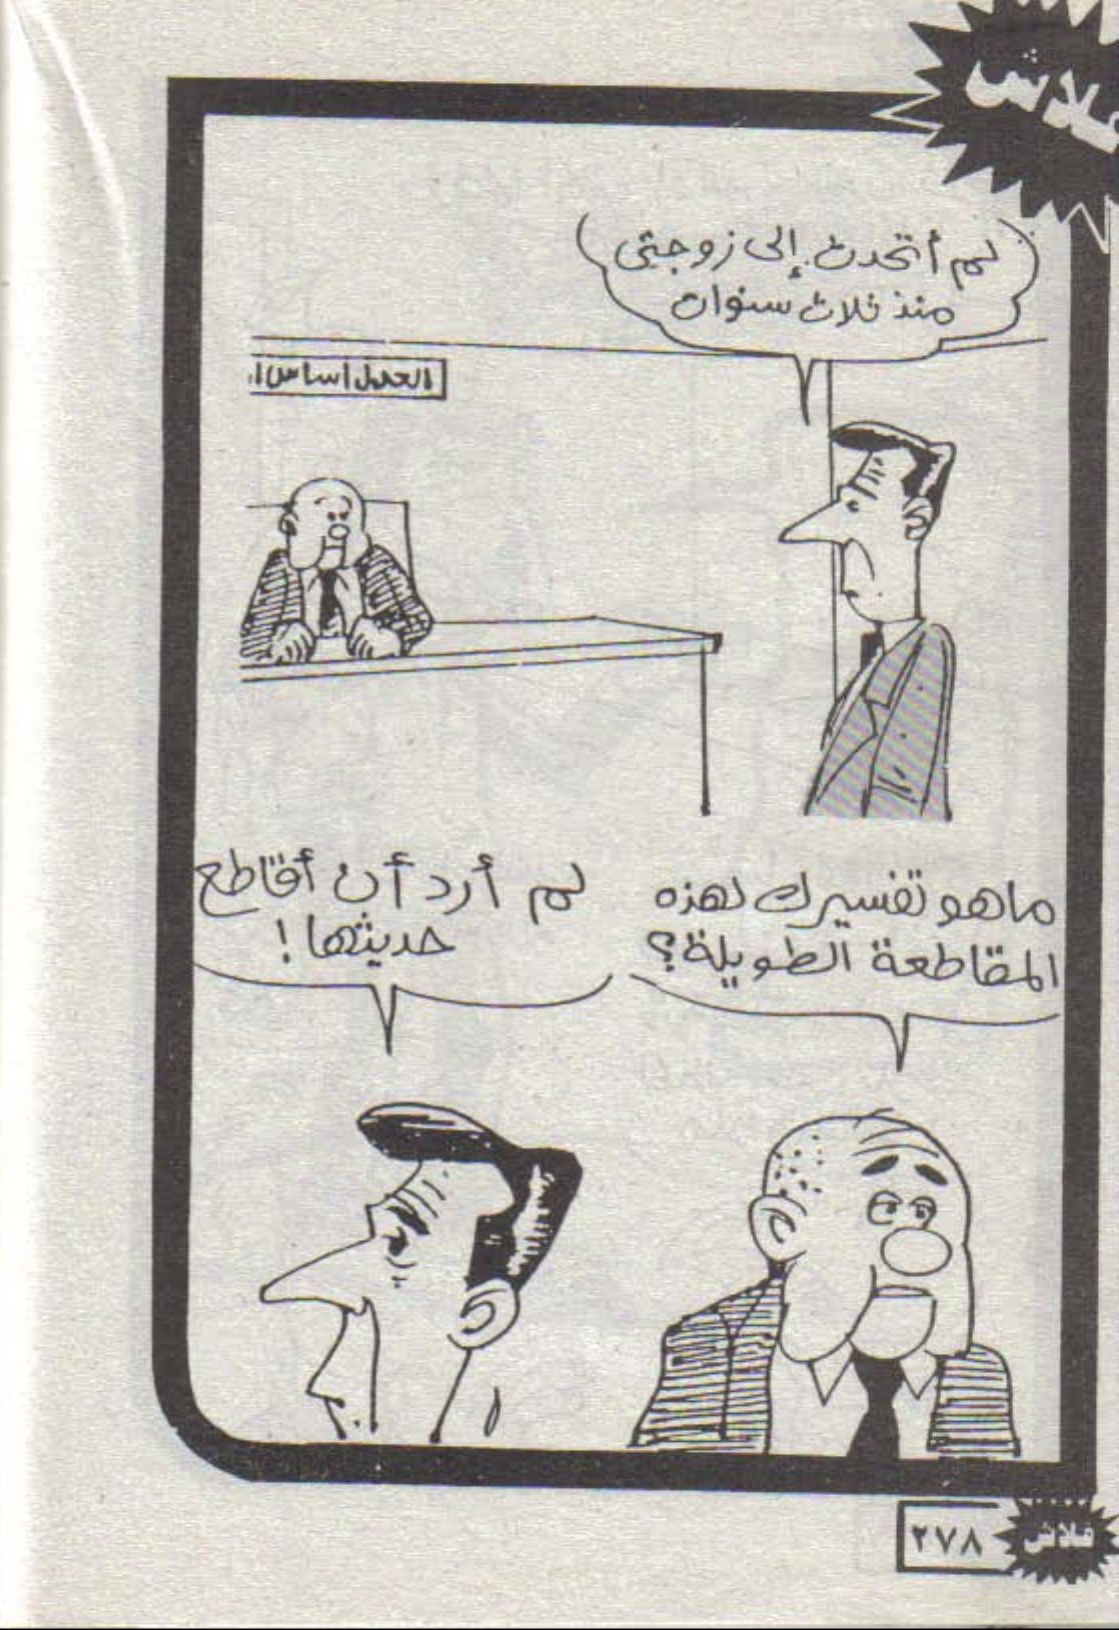 فلاش
لم أتحدث إلى زوجتي
منذ ثلاث سنوات
العدل اساس ا
ماهو تفسيرك لهذه
المقاطعة الطويلة؟
لم أرد أن أقاطع
حديثها!
٢٧٨
فلاش